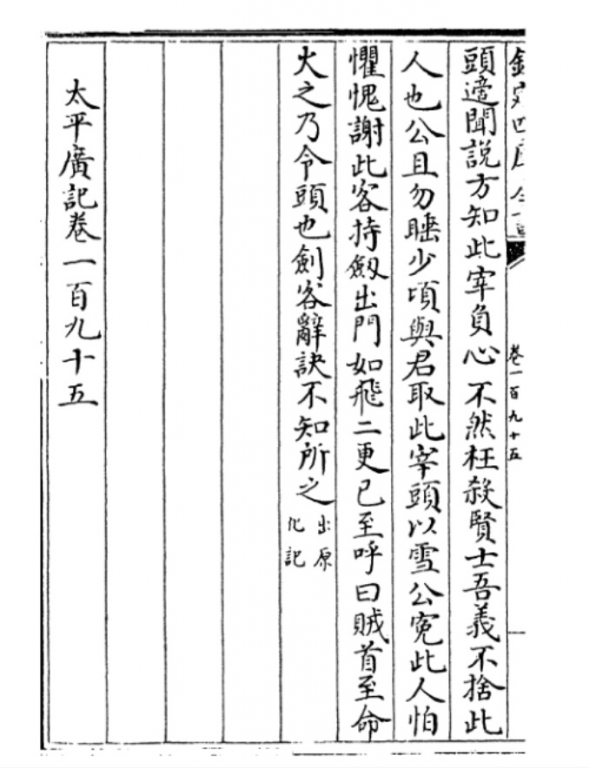 卷一百九十五
頭適聞說方知此宰負心不然枉殺賢士吾義不捨此
人也公且勿睡少頃與君取此宰頭以雪公寃此人怕
懼愧謝此客持劔出門如飛二更已至呼曰賊首至命
火之乃令頭也劍客辭訣不知所之
出原
化記
太平廣記卷一百九十五